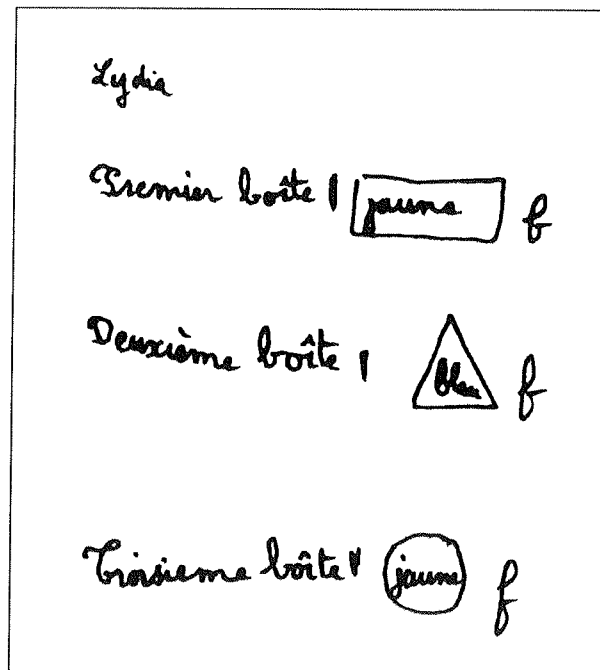 Lydia
Premier boîte jaune f
Deuxième boîte bleu f
Troisieme boîte jaune f